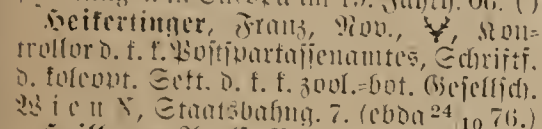 Heikertinger, Franz, Nov., Kon-
trollor d. k. k. Postsparkassenamtes, Schriftf.
d. koleopt. Sekt. d. k. k. zool.-bot. Gesellsch.
Wien X, Staatsbahng. 7. (ebda 24/10 76.)